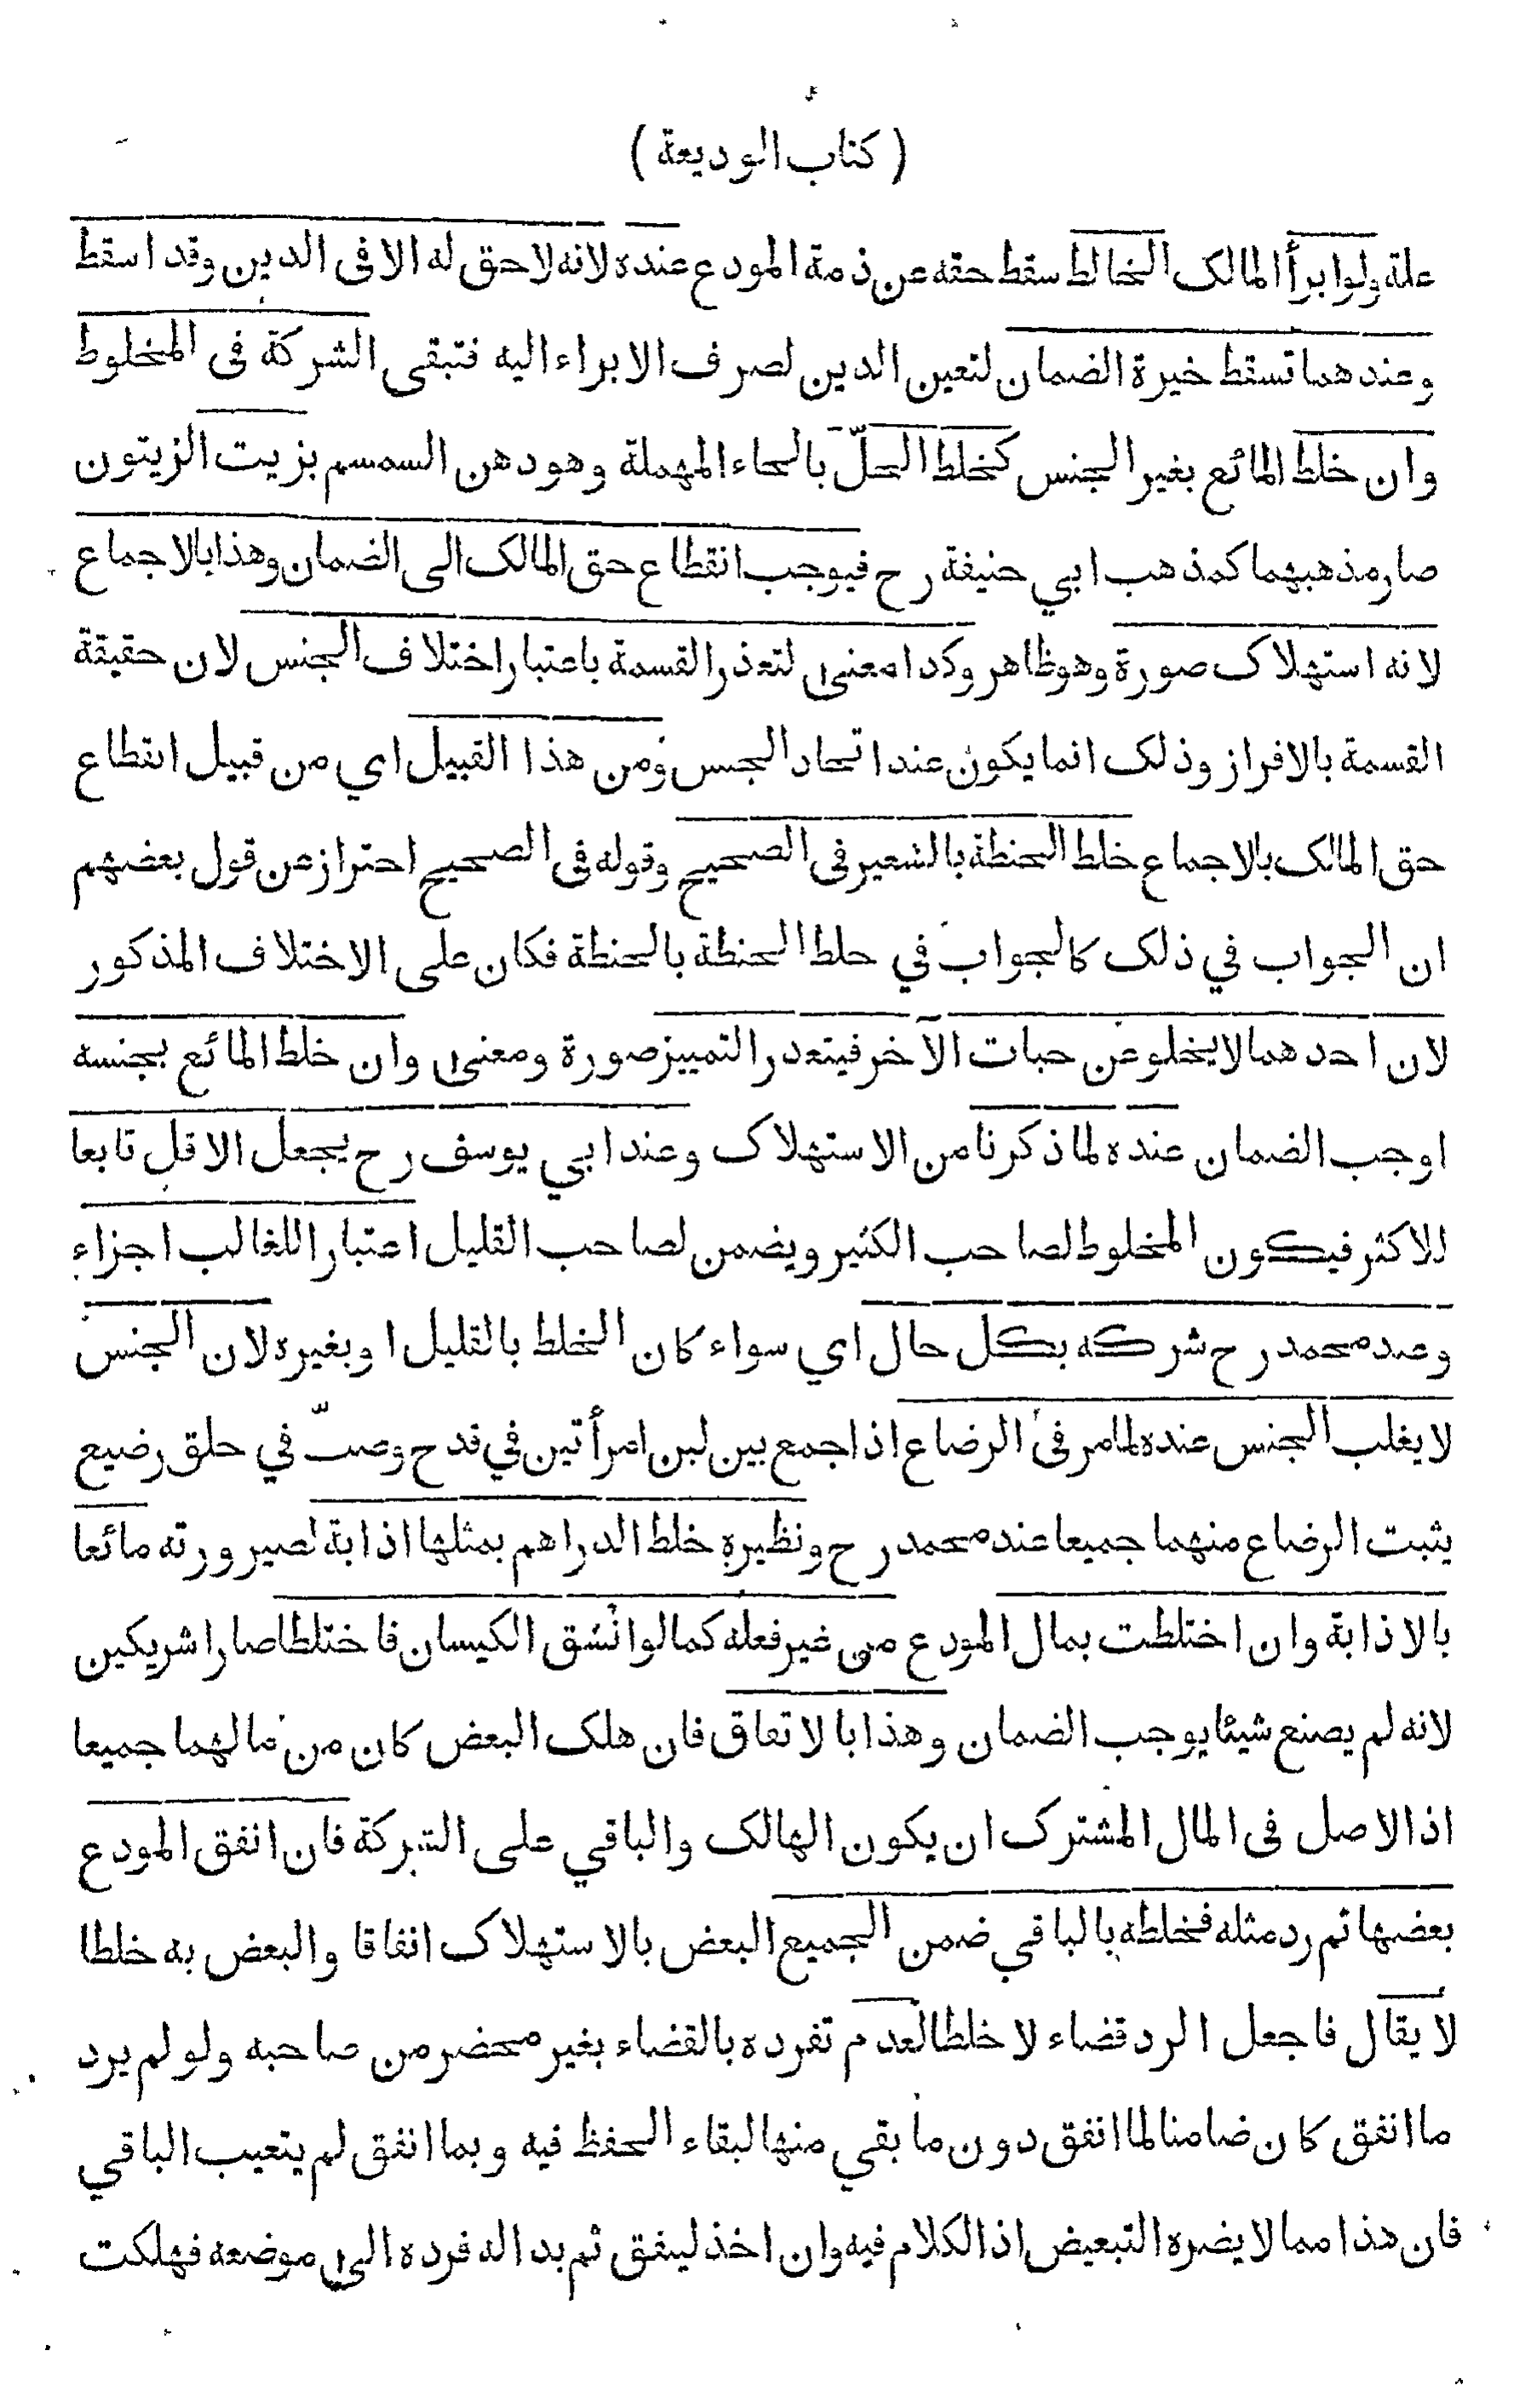 ( كتاب الوديعة )
علة ولو ابرأ المالك الخالط سقط حقه عن ذمة المودع عنده لانه لا حق له الا فى الدين وقد اسقط
وعندهما تسقط خيرة الضمان لتعين الدين لصرف الابراء اليه فتبقى الشركة فى المخلوط
وان خلط المائع بغير الجنس كخلط الحلّ بالحاء المهملة وهو دهن السمسم بزيت الزيتون
صار مذهبهما كمذهب ابي حنيفة رح فيوجب انقطاع حق المالك الى الضمان وهذا بالاجماع
لانه استهلاك صورة وهو ظاهر وكدا معنى لتعذر القسمة باعتبار اختلاف الجنس لان حقيقة
القسمة بالافراز وذلك انما يكون عند اتحاد الجنس ومن هذا القبيل اي من قبيل انقطاع
حق المالك بالاجماع خلط الحنطة بالشعير فى الصحيح وقوله فى الصحيح احتراز عن قول بعضهم
ان الجواب في ذلك كالجواب في حلط الحنطة بالحنطة فكان على الاختلاف المذكور
لان احدهما لا يخلو عن حبات الآخر فيتعدر التمييز صورة ومعنى وان خلط المائع بجنسه
اوجب الضمان عنده لما ذكرنا من الاستهلاك وعند ابي يوسف رح يجعل الاقل تابعا
للاكثر فيكون المخلوط لصاحب الكثير ويضمن لصاحب القليل اعتبارا للغالب اجزاء
وعند محمد رح شركه بكل حال اي سواء كان الخلط بالقليل او بغيره لان الجنس
لا يغلب الجنس عنده لما مر فى الرضاع اذا جمع بين لبن امرأتين في قدح وصبّ في حلق رضيع
يثبت الرضاع منهما جميعا عند محمد رح ونظيره خلط الدراهم بمثلها اذابة لصيرورته مائعا
بالاذابة وان اختلطت بمال المودع من غير فعله كما لو انشق الكيسان فاختلطا صارا شريكين
لانه لم يصنع شيئا يوجب الضمان وهذا بالاتفاق فان هلك البعض كان من مالهما جميعا
اذ الاصل فى المال المشترك ان يكون الهالك والباقي على الشركة فان انفق المودع
بعضها ثم رد مثله فخلطه بالباقي ضمن الجميع البعض بالاستهلاك انفاقا والبعض به خلطا
لا يقال فاجعل الرد قضاء لا خلطا لعدم تفرده بالقضاء بغير محضر من صاحبه ولو لم يرد
ما انفق كان ضامنا لما انفق دون ما بقي منها لبقاء الحفظ فيه وبما انفق لم يتعيب الباقي
فان هذا مما لا يضره التبعيض اذ الكلام فيه وان اخذ لينفق ثم بدا له فرده الى موضعه فهلكت